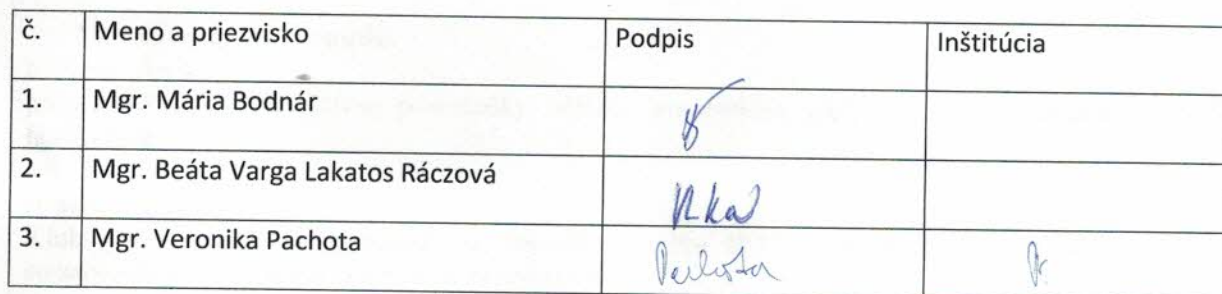 č. Meno a priezvisko Podpis Inštitúcia
1. Mgr. Mária Bodnár
2. Mgr. Beáta Varga Lakatos Ráczová
3. Mgr. Veronika Pachota Pachota